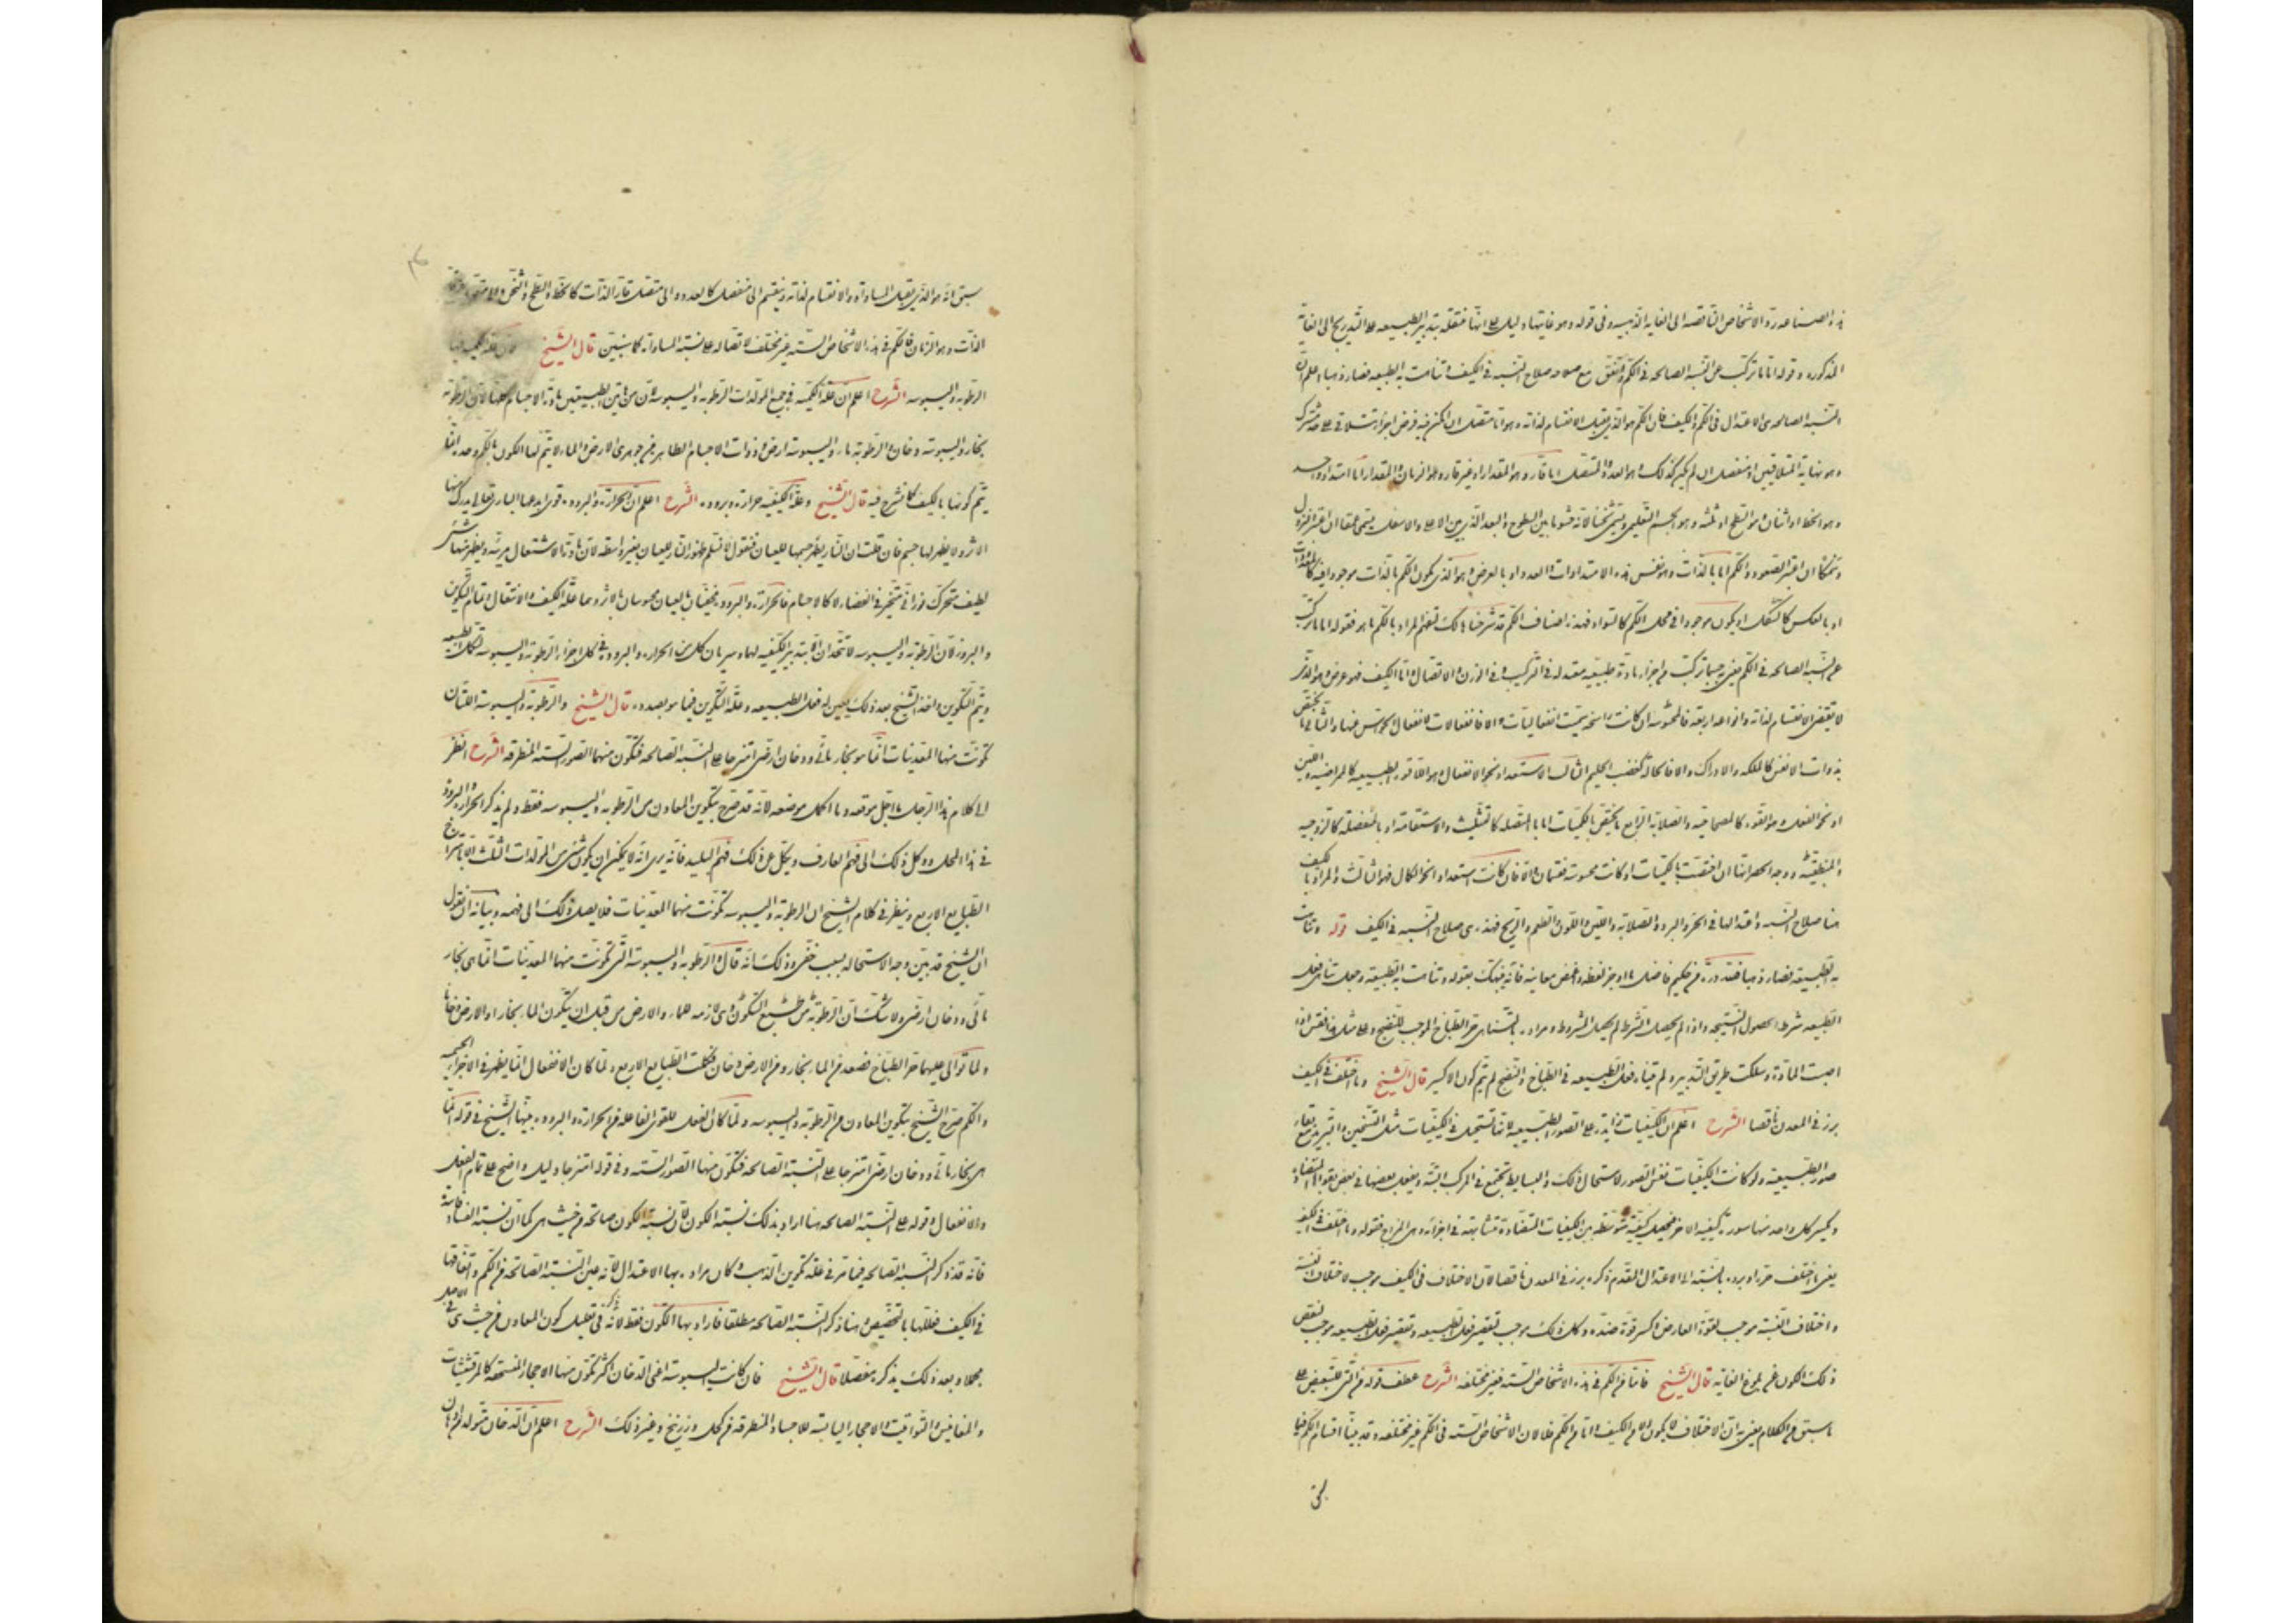 هذه الصناعه ردّ الاشخاص الناقصه الى الغايه الذهبيه وفى قوله وهو غايتها دليل على انّها منتقله بتدبير الطبيعه على التدريج الى الغاية
المذكوره وقوله امّا ما تركّب عن النسبه الصالحه فى الكمّ واتفق مع صلاحه صلاح النسبه فى الكيف وتناهت به الطبيعه فصار ذهبا اعلم انّ
النسبه الصالحه هى الاعتدال فى الكمّ والكيف فان الكمّ هو الذى يقبل الانقسام لذاته وهو امّا متصل ان امكن فيه فرض اجزاء تتلاقى على حد مشترك
وهو نهاية المتلاقيين او منفصل ان لم يكن كذلك وهو العدد والمتصل اما قارّ وهو المقدار او غير قار وهو الزمان والمقدار اما امتداد واحد
وهو الخط او اثنان وهو السطح او ثلثه وهو الجسم التعليمى ويسمّى ثخنا لانه حشو ما بين السطوح والبعد الذى بين الاعلى والاسفل يسمّى عمقا ان اعتبر النزول
وسمكا ان اعتبر الصعود والكم اما بالذات وهو نفس هذه الامتدادات والعدد او بالعرض وهو الذى يكون الكم بالذات موجودا فيه كالمعدودات
او بالعكس كالشكل او يكون موجودا فى محل الكم كالسواد فهذه اصناف الكم قد شرحناها لك لتفهم المراد بالكم ما هو فقوله اما ما تركّب
عن النسبه الصالحه فى الكم يعنى به جسما تركّب من اجزاء مادة طبيعيه معتدله فى التركيب وفى الوزن والاتصال وامّا الكيف فهو عرض وهو الذى
لا يقتضى الانقسام لذاته وانواعه اربعه فالمحسوسه ان كانت راسخه سمّيت انفعاليات والا فانفعالات لانفعال الحواس عنها والثانى ما يختص
بذوات الانفس كالملكه والادراك والا فالحاله كغضب الحليم الثالث الاستعداد نحو الانفعال وهو اللاقوه الطبيعيه كالممراضيه واللين
او نحو الفعل وهو القوه كالمصحاحيه والصلابه الرابع ما يختص بالكميّات اما بالمتصله كالتثليث والاستقامه او بالمنفصله كالزوجيه
والمنطقيّه ووجه الحصر انها ان اختصت بالكميات او كانت محسوسه فقسمان والا فان كانت استعدادا نحو الكمال فهو الثالث والمراد بالكيف
هنا صلاح النسبه واعتدالها فى الحر والبرد والصلابه واللين واللون والطعم والريح فهذه هى صلاح النسبه فى الكيف قوله وتناهت
به الطبيعه فصار ذهبا فلله درّه من حكيم فاضل ما اوجز لفظه واغمض معانيه فانه نبهك بقوله وتناهت به الطبيعه وجعل تناهى فعل
الطبيعه شرطا لحصول النتيجه واذا لم يحصل الشرط لم يحصل المشروط ومراده بالتناهى حر الطباخ الموجب للنضج وعلى مثل هذا قس اذا
اصبت المادة وسلكت طريق التدبير ولم يتناه فعل الطبيعه فى الطباخ والنضج لم يتم كون الاكسير قال الشيخ وما اختلف فى الكيف
برز فى المعدن ناقصا الشرح اعلم ان الكيفيات زايدة على الصور الطبيعيه لانها تستحيل فى الكيفيات مثل التسخين والتبريد مع بقاء
صور الطبيعيه ولو كانت الكيفيات نفس الصور لاستحال ذلك والبسايط تجتمع فى المركب البتة ويفعل بعضها فى بعض بقواها المتضادة
ويكسر كل واحد منها سورة كيفية الاخر فيحصل كيفية متوسّطه بين الكيفيات المتضادة متشابهة فى اجزائه وهى المزاج فقوله وما اختلف فى الكيف
يعنى ما اختلف حره او برده بالنسبة الى الاعتدال المقدّم ذكره برز فى المعدن ناقصا لان الاختلاف فى الكيف موجب لاختلاف النسبة
واختلاف النسبة موجب لقوة العارض وكسر قوة ضدّه وكل ذلك موجب لتقصير فعل الطبيعه وتقصير فعل الطبيعه موجب لنقص
ذلك الكون عن بلوغ الغايه قال الشيخ فامّا الكم فى هذه الاشخاص الستّه فغير مختلفه الشرح عطف قوله من التى للتبعيض على
ما سبق من الكلام يعنى به انّ الاختلاف لا يكون الا من الكيف وامّا من الكم فلا لان الاشخاص الستّه فى الكم غير مختلفه وقد بيّنّا اقسام الكم فيما
سبق انّه هو الذى يقبل المساواة والانقسام لذاته وينقسم الى منفصل كالعدد والى متصل قارّ الذات كالخط والسطح والثخن
الذات وهو الزمان فالكم فى هذه الاشخاص الستّه غير مختلف لاتصاله على نسبة المساواة كما سنبيّن قال الشيخ لان علة الكميه فيها
الرطوبه واليبوسه الشرح اعلم ان علة الكميّه فى جميع المولدات الرطوبه واليبوسه لان من هاتين الطبيعتين مادّة الاجسام كلها لان الرطوبه
بخار واليبوسه دخان والرطوبه ماء واليبوسه ارض وذوات الاجسام الظاهره من جوهرى الارض والماء لا يتم لها الكون بالكم وحده انما
يتم كونها بالكيف كما نشرح فيه قال الشيخ وعلّة الكيفيّه حراره وبروده الشرح اعلم ان الحرارة والبروده قوى ابدعها البارى تعالى يدرك منها
الاثر ولا يظهر لها جسم فان قلت ان النار يظهر جسمها للعيان فنقول لا نسلم ظهور النار للعيان بغير واسطه لان مادة الاشتعال مرئيّه ويظهر منها شىء
لطيف متحرك نورانى متحيز فى الفضاء لا كالاجسام فالحرارة والبروده مخفيّان بالعيان محسوسان بالاثر وهما علة الكيف والانتقال وتمام التكوين
والبروز لان الرطوبه واليبوسه لا تتحدان الا بتدبير الكيفيه لهما وسريان كل من الحراره والبروده فى كل اجزاء الرطوبه واليبوسه
ويتم التكوين واخذ الشيخ بعد ذلك يبين له فعل الطبيعه وعلّة التكوين فيما هو بصدده قال الشيخ والرطوبة واليبوسة اللتان
تكوّنت منهما المعدنيات انّما هو بخار مائى ودخان ارضى امتزجا على النسبه الصالحه فتكون منهما الصور الستّه المنطرقه الشرح انظر
الى كلام هذا الرجل ما اجل موقعه وما اكمل موضعه لانه قد صرّح بتكوين المعادن من الرطوبه واليبوسه فقط ولم يذكر الحراره والبرودة
فى هذا المحل ووكل ذلك الى فهم العارف ويكل عن ذلك فهم البليد فانه يرى انه لا يمكن ان يكون شىء من المولدات الثلث الا بامتزاج
الطبايع الاربع وينظر فى كلام الشيخ ان الرطوبة واليبوسه تكوّنت منهما المعدنيات فلا يصل ذلك الى فهمه وبيانه ان نقول
ان الشيخ قد بين وجه الاستحاله بسبب خفى وذلك انّه قال والرطوبه واليبوسه التى تكوّنت منهما المعدنيات انما هى بخار
مائى ودخان ارضى ولا شك ان الرطوبه من الكون وهى لازمه للماء والارض من قبل ان يتكون الماء بخارا والارض دخانا
ولما توالى عليهما حر الطباخ فصعد من الماء بخار ومن الارض دخان فكملت الطبايع الاربع ولما كان الانفعال انما يظهر فى الاجزاء الجسميه
والكم صرّح الشيخ بتكوين المعادن من الرطوبه واليبوسه ولمّا كان الفعل للقوى الفاعله من الحرارة والبروده بيّنها الشيخ فى قوله انما
هى بخار مائى ودخان ارضى امتزجا على النسبة الصالحه فتكون منهما الصور الستّه وفى قوله امتزجا دليل واضح على تمام الفعل
والانفعال وقوله على النسبة الصالحه هنا اراد بذلك نسبة الكون لان نسبة الكون صالحه من حيث هى كما ان نسبة الفساد فاسدة
فانه قد ذكر النسبه الصالحه فيما مرّ فى علة تكوين الذهب وكان مراده بها الاعتدال لانه عين النسبة الصالحه من الكم واتفاقها
فى الكيف فعللها بالتخصيص وهنا ذكر النسبه الصالحه مطلقا فاراد بها الكون فقط لانه ذكره فى تعليل كون المعادن من حيث هى فى الاصل
مجملا وبعد ذلك يذكره مفصلا قال الشيخ فان كانت اليبوسة اعنى الدخان اكثر تكون منها الاحجار المنسحقه كالمرقشيثات
والمغانيس والتواتيت والاحجار اليابسه للاجساد المنطرقه من كحل وزرنيخ وغير ذلك الشرح اعلم ان الدخان متولد من